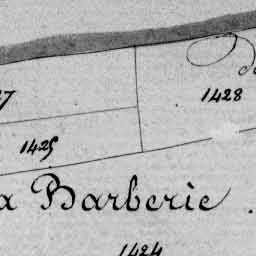 1428
1425
a Barberie.
1424